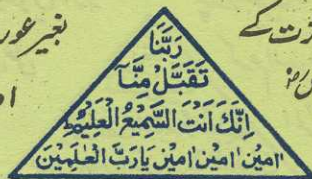 بغیر عور
رَبَّنَا
تَقَبَّلْ مِنَّآ
اِنَّكَ اَنْتَ السَّمِيْعُ الْعَلِيْمُ
اٰمِيْن اٰمِيْن اٰمِيْن يَارَبَّ الْعٰلَمِيْنَ